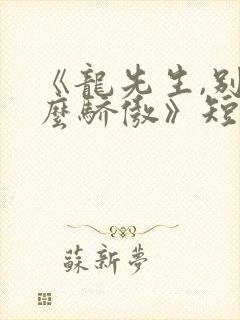 《龍先生,別
麼驕傲》短
蘇新夢